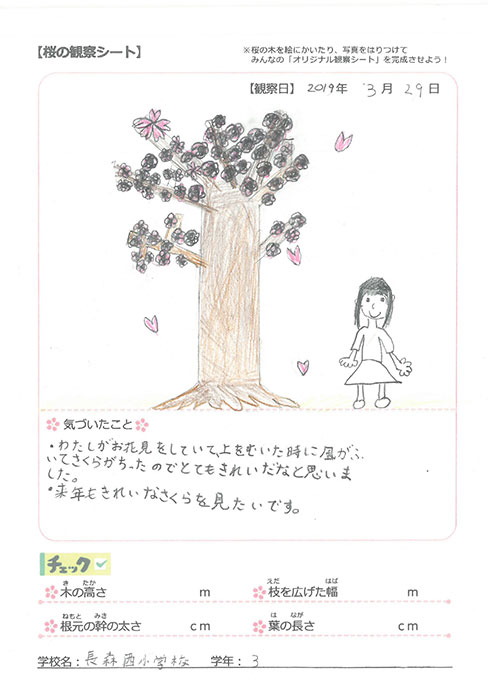 【桜の観察シート】
※桜の木を絵にかいたり、写真をはりつけて
みんなの「オリジナル観察シート」を完成させよう！
【観察日】 2019年 3月 29日
気づいたこと
・わたしがお花見をしていて、上をむいた時に風がふ
いてさくらがちったのでとてもきれいだなと思いま
した。
・来年もきれいなさくらを見たいです。
チェック
木の高さ m
きたか
枝を広げた幅 m
えだ はば
根元の幹の太さ cm
ねもと みき
葉の長さ cm
は なが
学校名：長森西小学校 学年：3